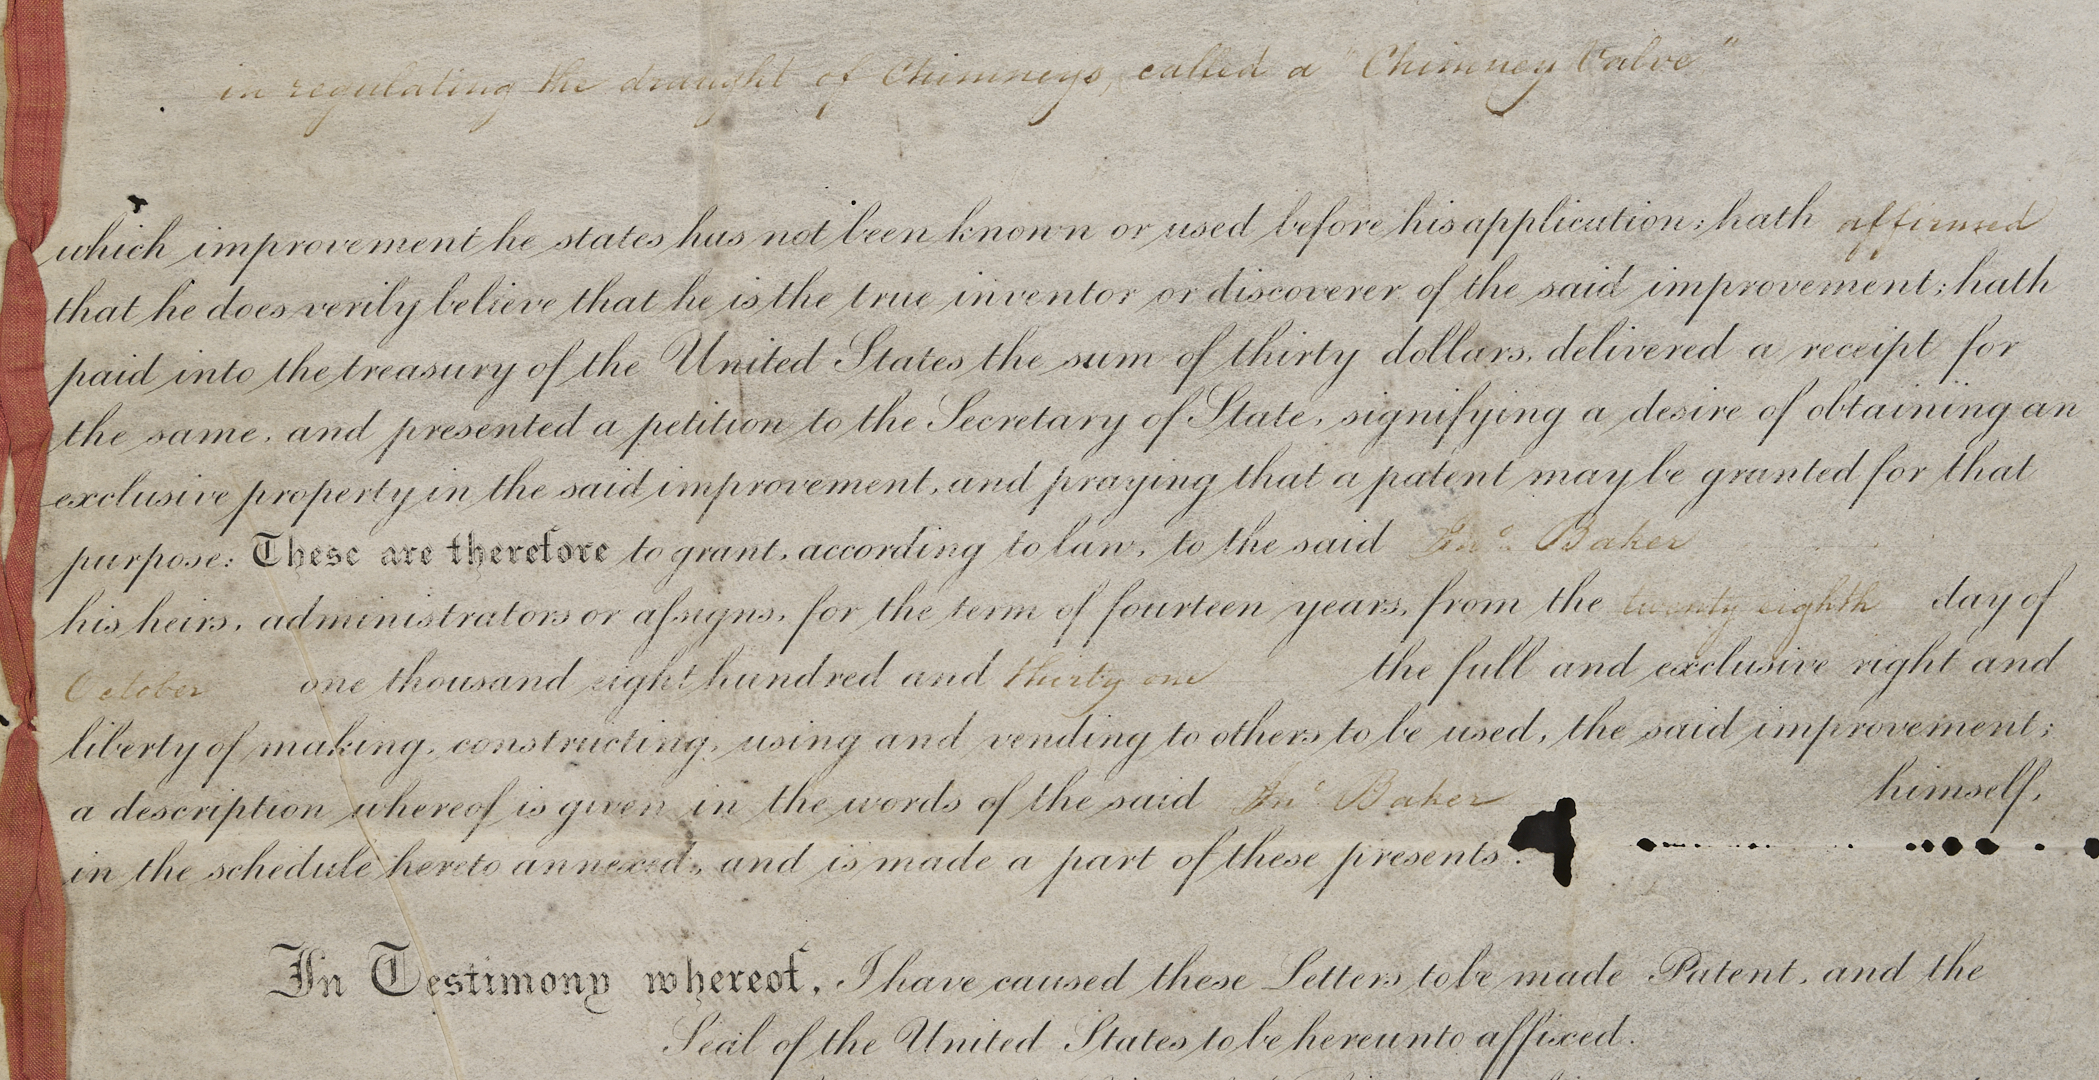 in regulating the draught of Chimneys, called a "Chimney Valve"
which improvement he states has not been known or used before his application; hath affirmed
that he does verily believe that he is the true inventor or discoverer of the said improvement; hath
paid into the treasury of the United States the sum of thirty dollars, delivered a receipt for
the same, and presented a petition to the Secretary of State, signifying a desire of obtaining an
exclusive property in the said improvement, and praying that a patent may be granted for that
purpose: These are therefore to grant, according to law, to the said Jno. Baker
his heirs, administrators or assigns, for the term of fourteen years, from the twenty eighth day of
October one thousand eight hundred and thirty one the full and exclusive right and
liberty of making, constructing, using and vending to others to be used, the said improvement;
a description whereof is given in the words of the said Jno. Baker himself,
in the schedule hereto annexed, and is made a part of these presents.
In Testimony whereof, I have caused these Letters to be made Patent, and the
Seal of the United States to be hereunto affixed.